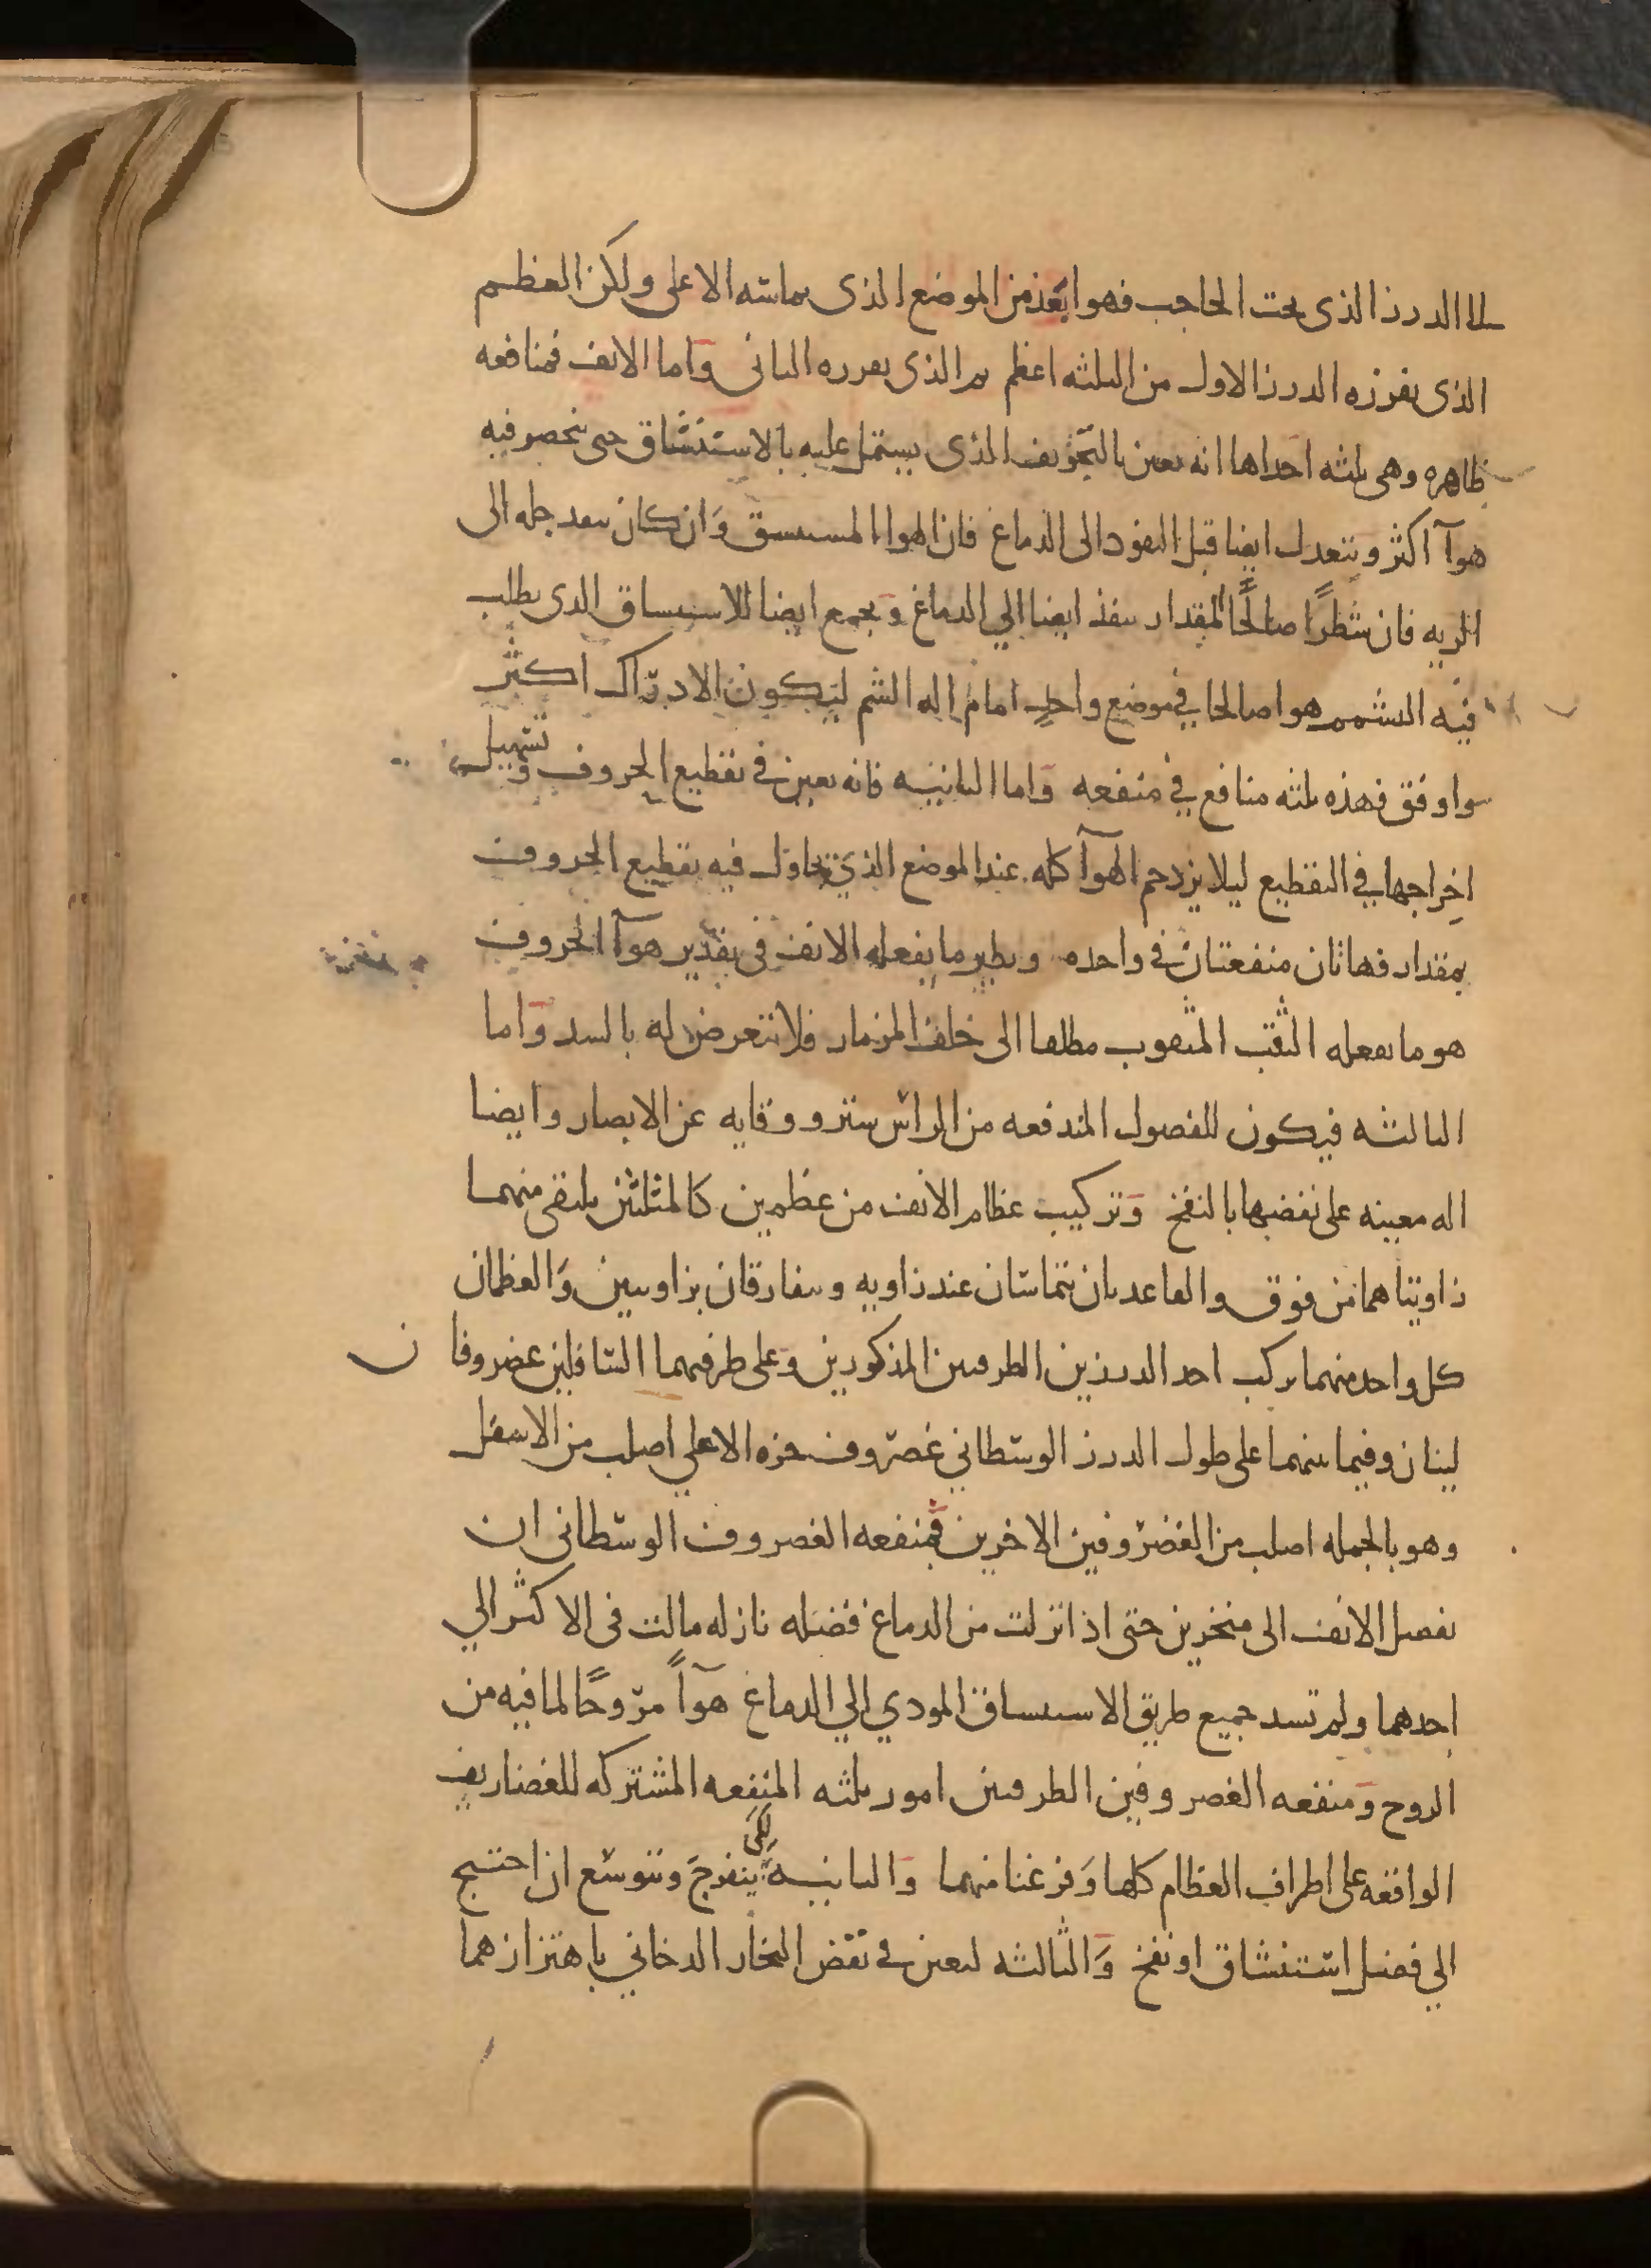 الى الدرز الذى تحت الحاجب فهو ابعد من الموضع الذى يماسه الاعلى ولكن العظم
الذى يفرزه الدرز الاول من الثلثه اعظم ثم الذى يفرزه الثانى واما الانف فمنافعه
ظاهره وهى ثلثه احداها انه يعين بالتجويف الذى يشتمل عليه بالاستنشاق حتى ينحصر فيه
هوآ اكثر ويتعدل ايضا قبل النفوذ الى الدماغ فان الهوا المستنشق وان كان ينفذ جله الى
الريه فان شطرًا صالحًا المقدار ينفذ ايضا الي الدماغ ويجمع ايضا للاستنشاق الذى يطلب
فيه التشمم هوا صالحا في موضع واحدٍ امام اله الشم ليكون الادراك اكثر
واوفق فهذه ثلثه منافع في منفعه واما الثانيه فانه يعين في تقطيع الحروف وتسهيل
اخراجها في التقطيع ليلا يزدحم الهوآ كله عند الموضع الذي يحاول فيه تقطيع الحروف
بمقدار فهاتان منفعتان في واحده ونظير ما يفعله الانف فى تقدير هوآ الحروف
هو ما يفعله الثقب المثقوب مطلقا الى خلف المزمار فلا يتعرض له بالسد واما
الثالثه فيكون للفصول المندفعه من الراس ستر ووقايه عن الابصار وايضا
اله معينه على نفضها بالنفخ وتركيب عظام الانف من عظمين كالمثلثين يلتقى منهما
زاويتاهما من فوق والقاعدتان يتماسان عند زاويه ويتفارقان بزاويتين والعظمان
كل واحد منهما يركب احد الدرزين الطرفيين المذكورين وعلى طرفيهما السافلين غضروفا ن
لينان وفيما بينهما على طول الدرز الوسطاني غضروف جزه الاعلي اصلب من الاسفل
وهو بالجمله اصلب من الغضروفين الاخرين فمنفعه الغضروف الوسطانى ان
يفصل الانف الى منخرين حتى اذا نزلت من الدماغ فضله نازله مالت فى الاكثر الي
احدهما ولم تسد جميع طريق الاستنشاق المودي الي الدماغ هوآً مروحًا لما فيه من
الروح ومنفعه الغضروفين الطرفيين امور ثلثه المنفعه المشتركه للغضاريف
الواقعه على اطراف العظام كلها وفرغنا منهما والثانيه لكى ينفرج ويتوسع ان احتيج
الي فضل استنشاق او نفخ والثالثه ليعين في نفض البخار الدخاني باهتزازهما